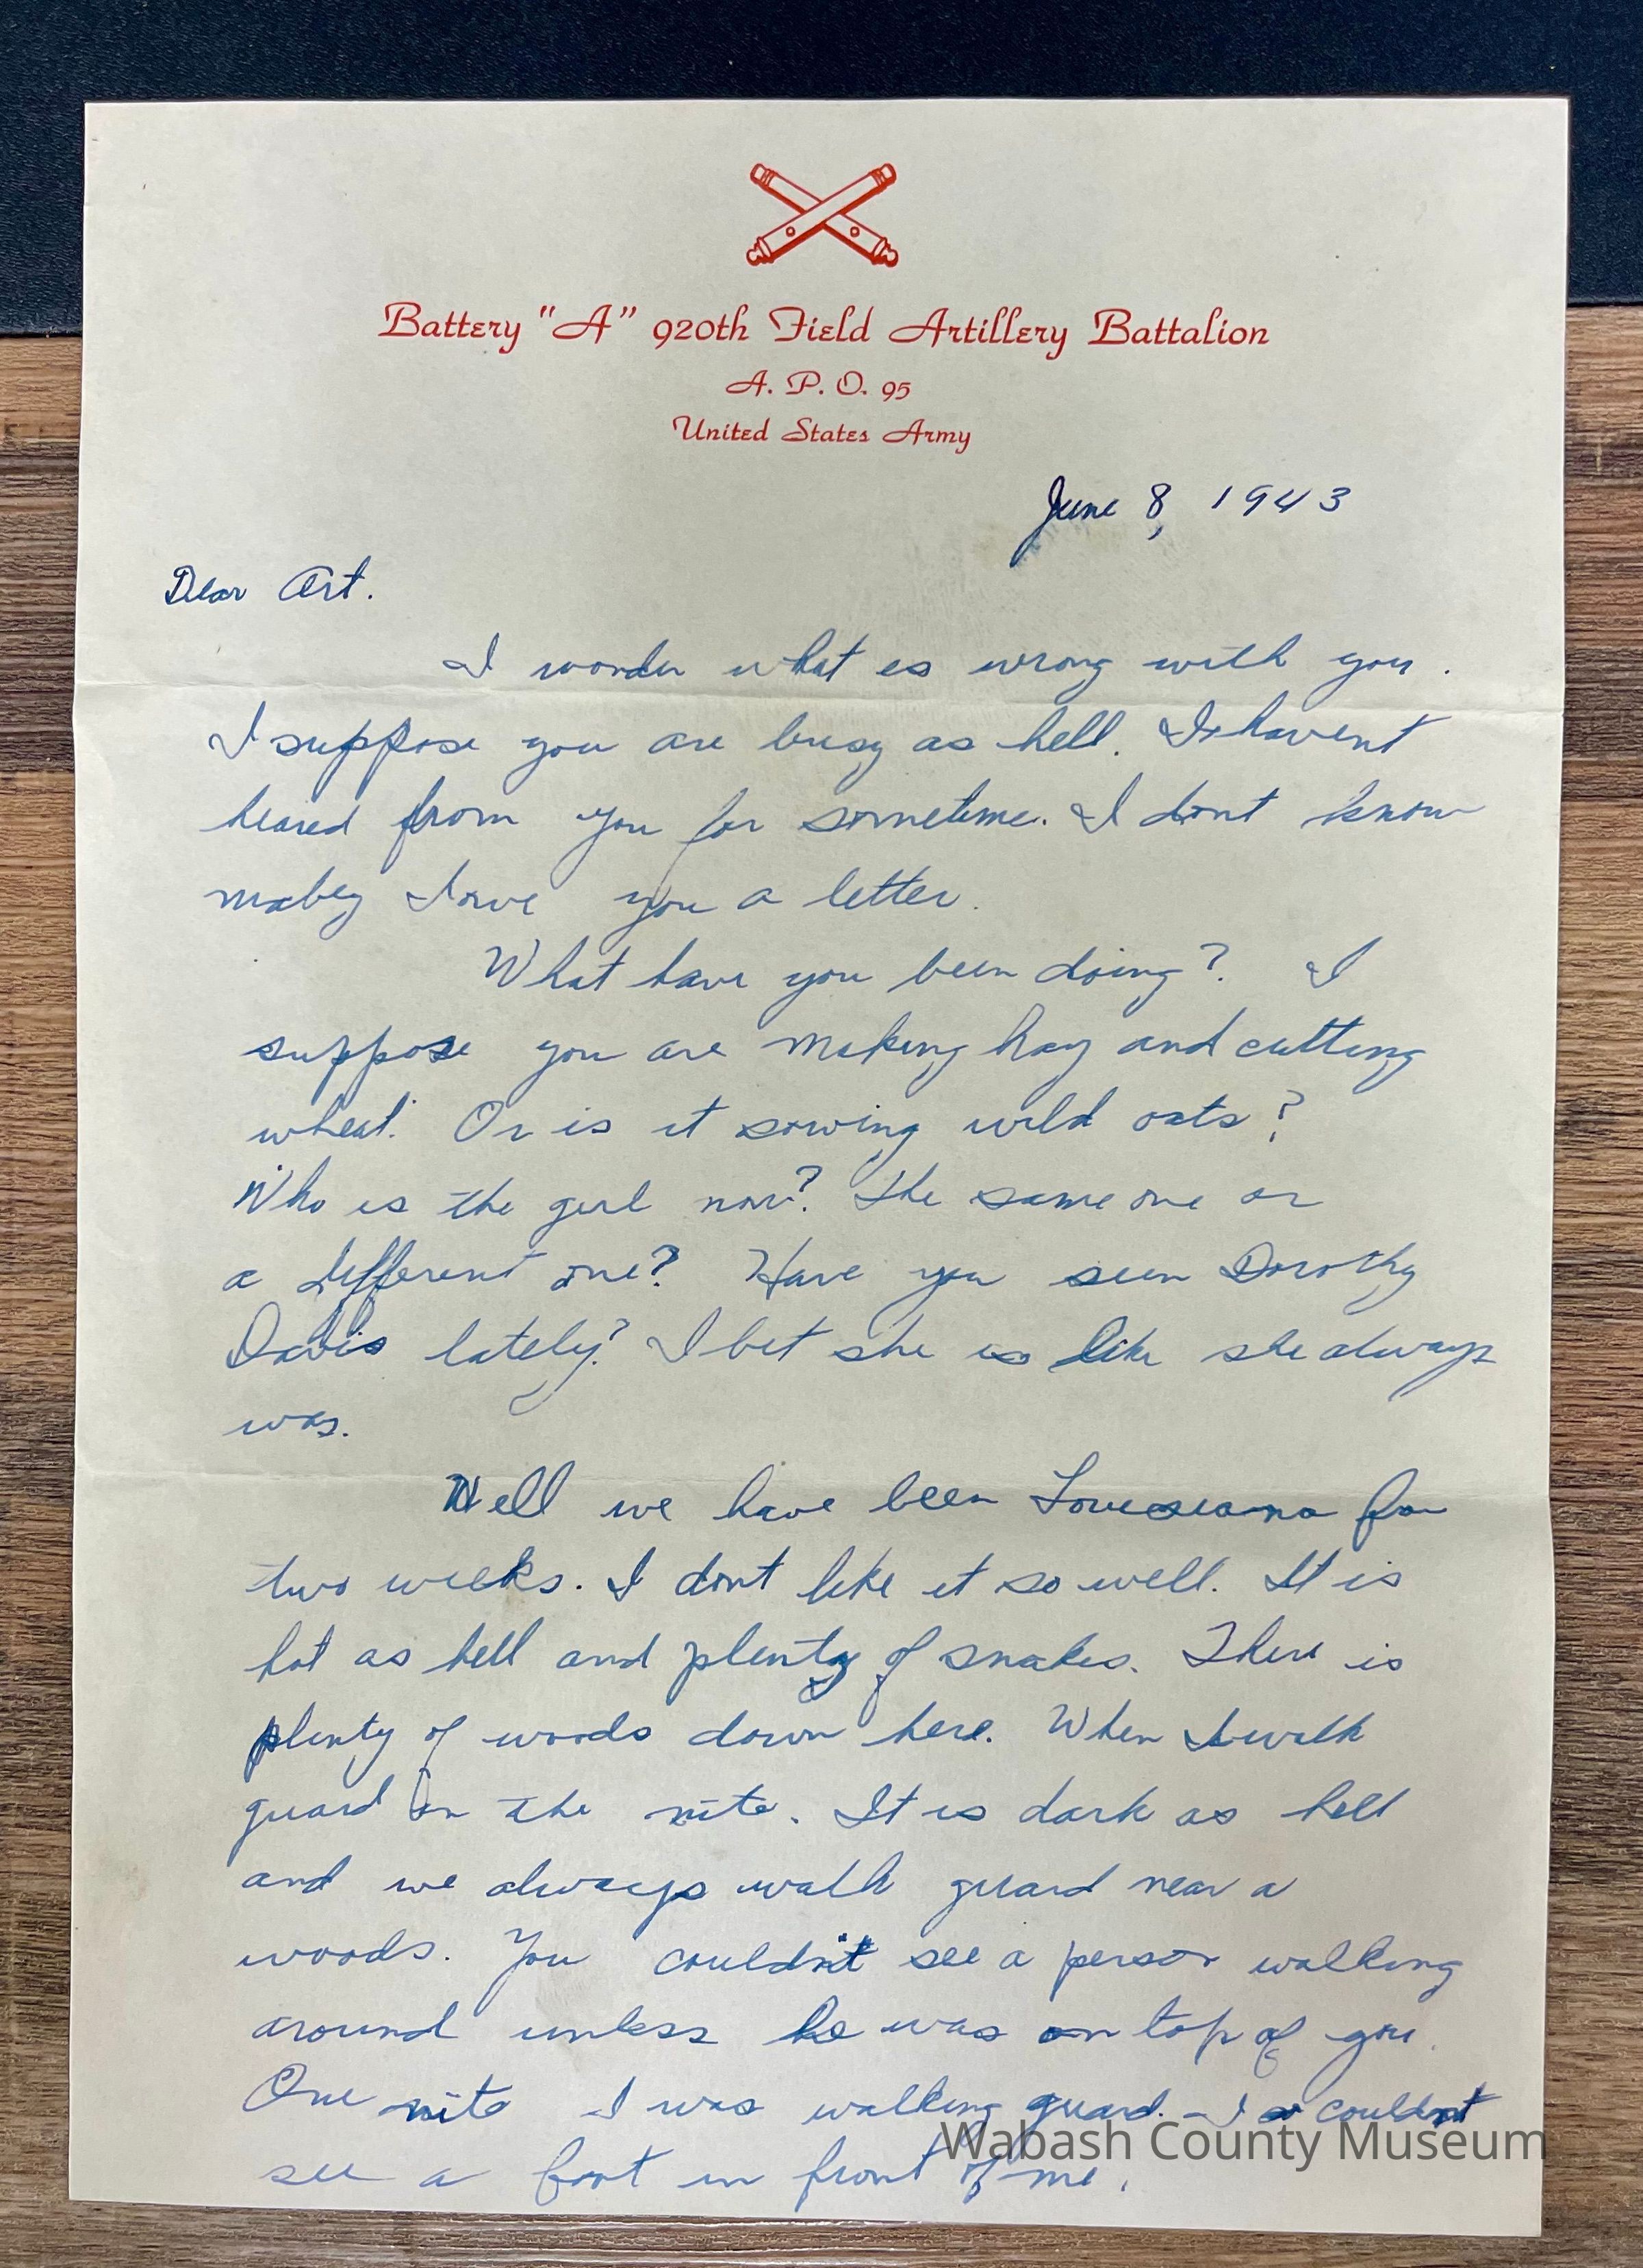 Battery "A" 920th Field Artillery Battalion
A. P. O. 95
United States Army
June 8, 1943
Dear Art.
I wonder what is wrong with you.
I suppose you are busy as hell. I havent
heared from you for sometime. I dont know
mabey I owe you a letter.
What have you been doing? I
suppose you are making hay and cutting
wheat. Or is it sowing wild oats?
Who is the girl now? The same one or
a different one? Have you seen Dorothy
Davis lately? I bet she is like she always
was.
Well we have been Louisiana for
two weeks. I dont like it so well. It is
hot as hell and plenty of snakes. There is
plenty of woods down here. When I walk
guard in the nite. It is dark as hell
and we always walk guard near a
woods. You couldn't see a person walking
around unless he was on top of you.
One nite I was walking guard. I couldnt
see a foot in front of me.
Wabash County Museum